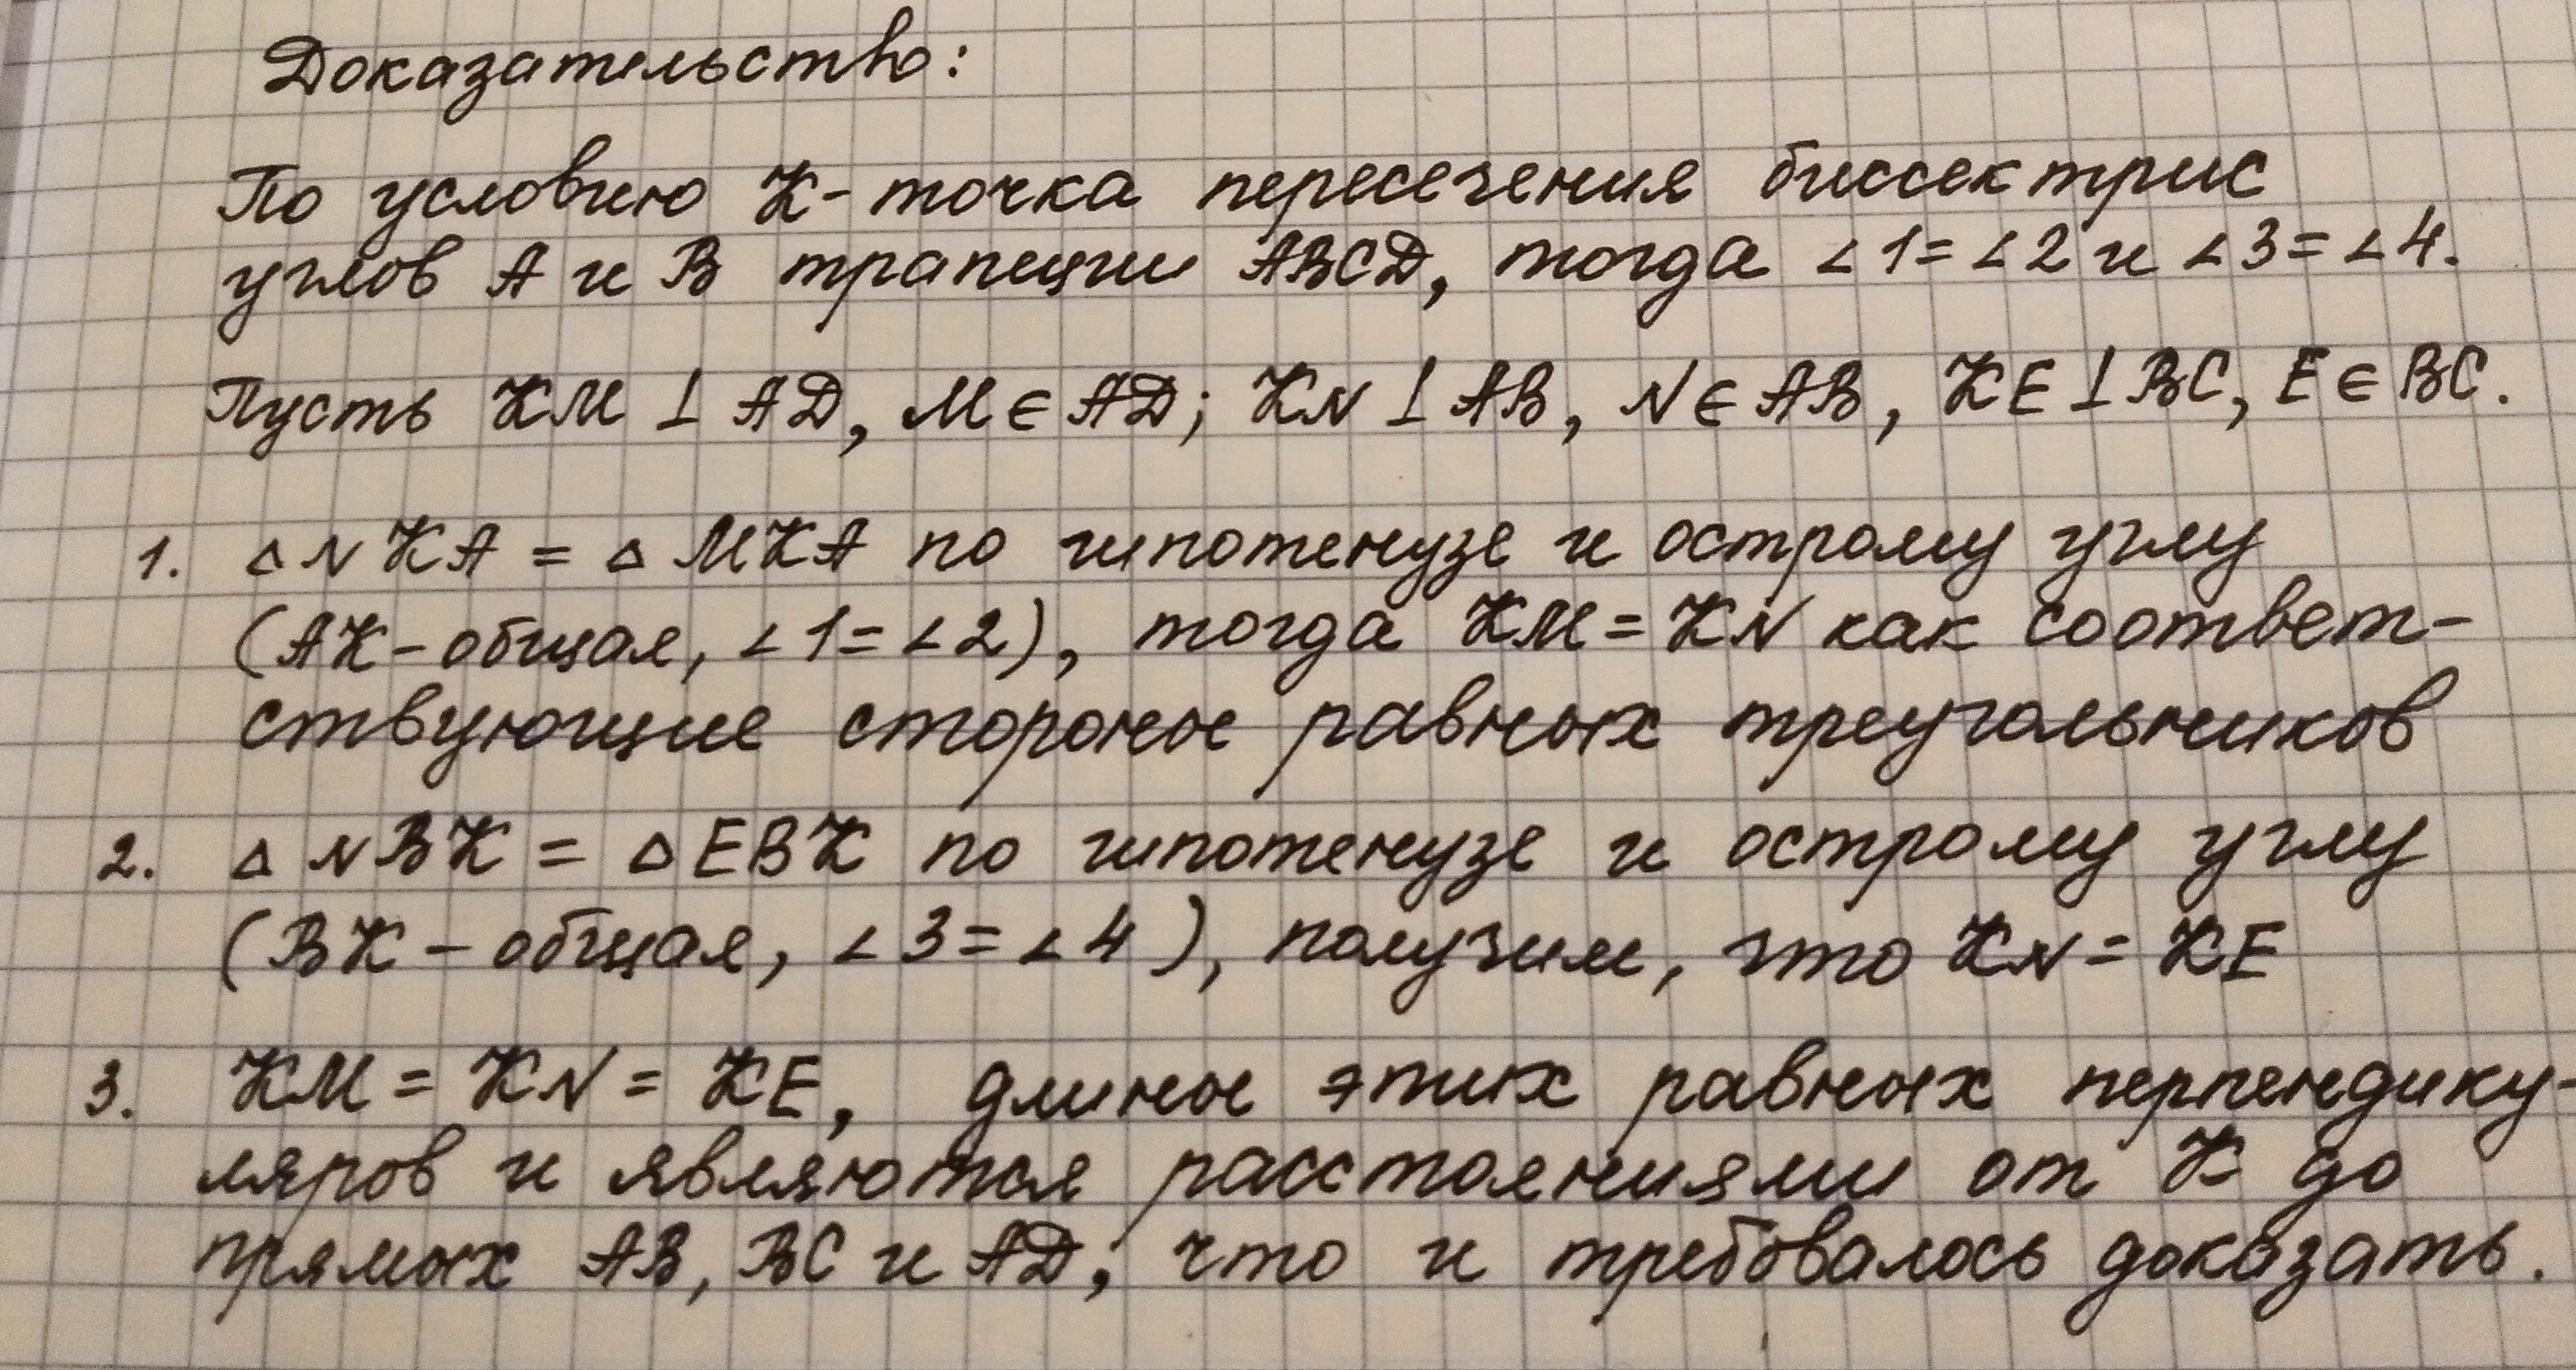 Доказательство:
По условию K - точка пересечения биссектрис
углов A и B трапеции ABCD, тогда ∠1=∠2 и ∠3=∠4.
Пусть KM ⊥ AD, M∈AD; KN ⊥ AB, N∈AB, KE⊥BC, E∈BC.
1. △NKA = △MKA по гипотенузе и острому углу
(AK-общая, ∠1=∠2), тогда KM=KN как соответ-
ствующие стороны равных треугольников
2. △NBK = △EBK по гипотенузе и острому углу
(BK-общая, ∠3=∠4), получим, что KN=KE
3. KM=KN=KE, длины этих равных перпендику-
ляров и являются расстояниями от K до
прямых AB, BC и AD, что и требовалось доказать.